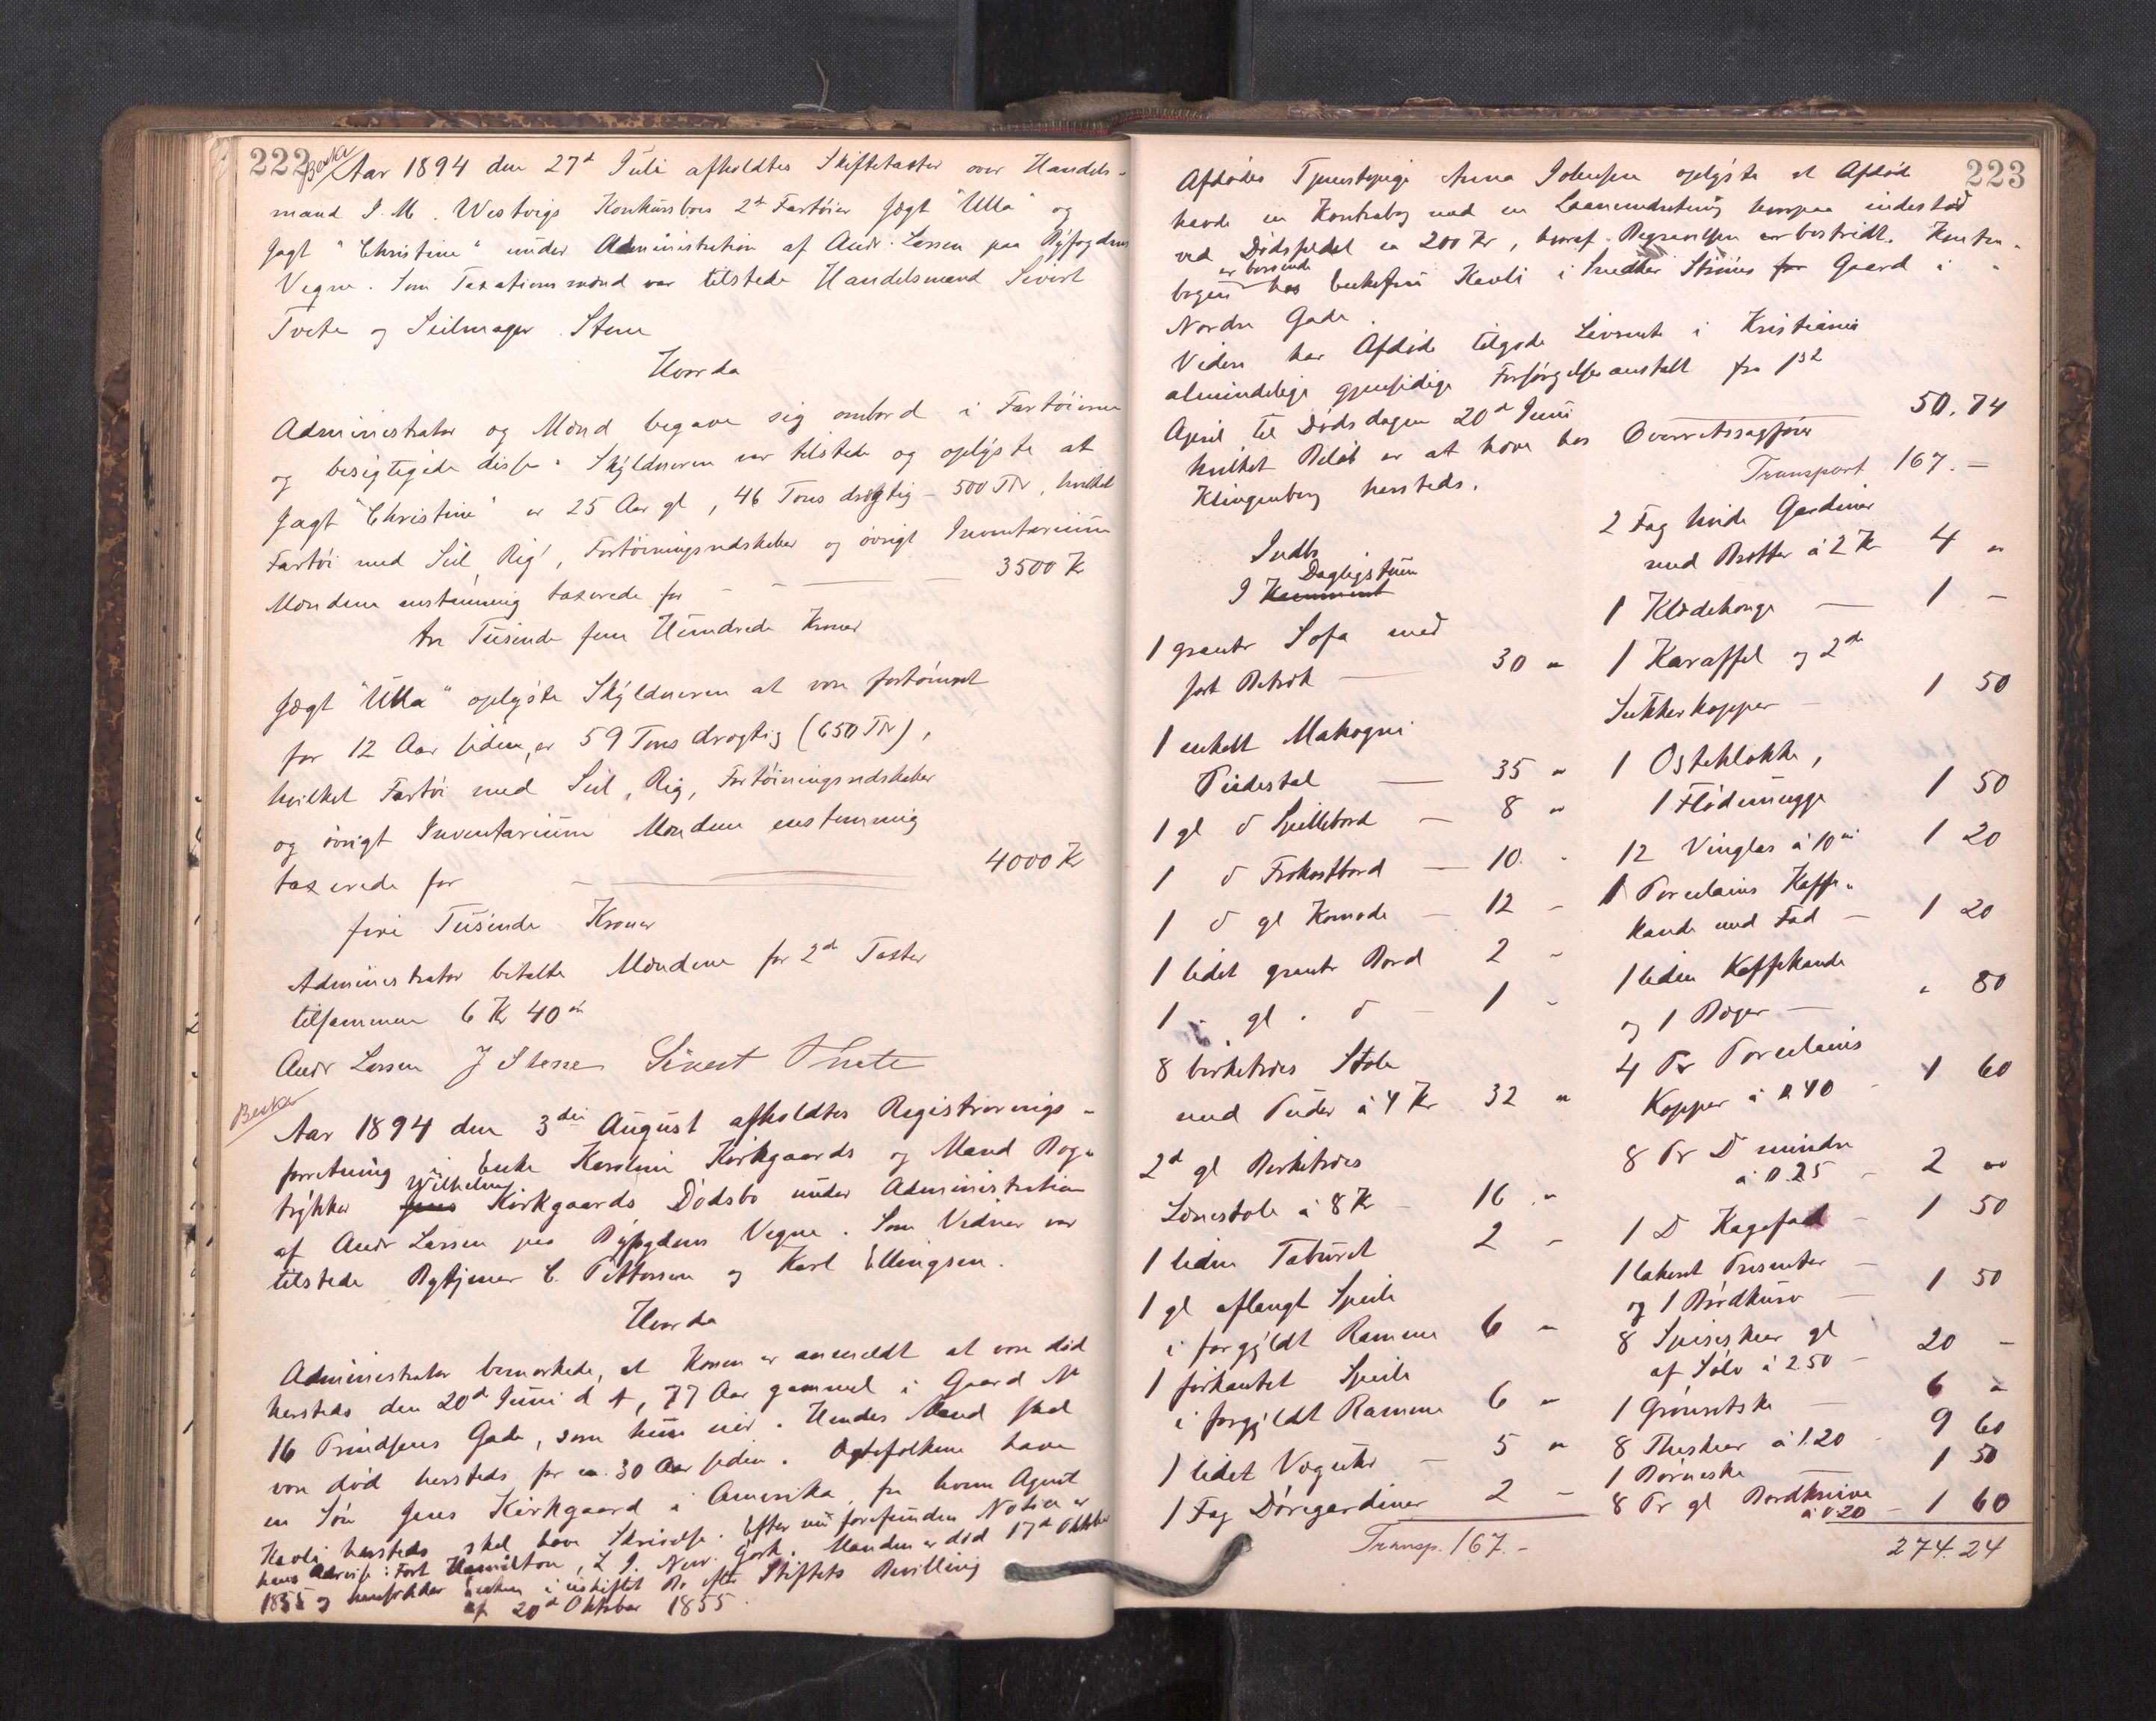 222
Aar 1894 den 27d Juli afholdtes Skiftetaxter over Handels-
mand J. M. Westvigs Konkursboes 2de Fartøier Jægt "Ulla" og
Jagt "Christine" under Administration af Andr. Larsen paa Byfogdens
Vegne. Som Taxationsmænd var tilstede Handelsmand Sivert
Tvete og Seilmager Stene
Hvorda
Administrator og Mænd begave sig ombord i Fartøierne
og besigtigede disse. Skyldneren var tilstede og oplyste at
Jagt "Christine" er 25 Aar gl, 46 Tons drægtig - 500 Tdr, hvilket
Fartøi med Seil, Rig, Fortøiningsredskaber og øvrigt Inventarium
Mændene enstemmig taxerede for — 3500 Kr
tre Tusinde fem Hundrede Kroner
Jægt "Ulla" oplyste Skyldneren at være fortømret
for 12 Aar siden, er 59 Tons drægtig (650 Tdr),
hvilket Fartøi med Seil, Rig, Fortøiningsredskaber
og øvrigt Inventarium Mændene enstemmig
taxerede for — 4000 Kr
fire Tusinde Kroner
Administrator betalte Mændene for 2de Taxter
tilsammen 6 Kr 40 ø
Andr Larsen J Stene Sivert Tvete
Aar 1894 den 3die August afholdtes Registrerings-
forretning i Enke Karoline Kirkgaards og Mand Bog-
trykker Jens Wilhelm Kirkgaards Dødsbo under Administration
af Andr Larsen paa Byfogdens Vegne. Som Vidner var
tilstede Bytjener C. Pettersen og Karl Ellingsen.
Hvorda
Administrator bemærkede, at Konen er anmeldt at være død
hersteds den 20d Juni d A, 77 Aar gammel i Gaard No
16 Gade, som hun eier. Hendes Mand skal
være død hersteds for ca. 30 Aar siden. Ægtefolkene have
en Søn Jens Kirkgaard i Amerika, fra hvem Agent
Kavli hersteds skal have Skrivelse. Efter en forefunden Notice er
hans Adresse: Fort Hamilton, L. I. New. York. Manden er død 17d Oktober
1855 og henfølger Enken i uskiftet Bo efter Stiftets Bevilling
af 20d Oktober 1855.
223
Afdødes Tjenestepige Anna Johnsen oplyste at Afdøde
havde en Kontrabog med en Laaneindretning hvorpaa indestod
ved Dødsfaldet ca 200 Kr, hvoraf Begravelsen er bestridt. Kontra-
bogen er beroende hos Kavli i Smedker Gaard i
Nordre Gade.
Videre har Afdøde tilgode Livrente i Kristiania
almindelige gjensidige Forsørgelsesanstalt fra 1ste
April til Dødsdagen 20d Juni — 50.74
hvilket Beløb er at hæve hos Overretssagfører
Klingenberg hersteds.
Indbo
I Kammeret Dagligstuen
1 grøntr Sofa med
sort Betræk — 30 "
1 enkelt Mahogni
Piedestal — 35 "
1 gl d Spillebord — 8 "
1 d Frokostbord — 10 "
1 d gl Komode — 12 -
1 lidet grantr Bord 2 -
1 - gl. d — 1 -
8 birketræes Stole
med Puder à 4 Kr 32 "
2d gl Birketræes
Lænestole à 8 Kr — 16 "
1 liden Taburet 2 -
1 gl aflangt Speile
i forgyldt Ramme 6 -
1 firkantet Speile
i forgyldt Ramme 6 -
1 lidet Væguhr — 5 "
1 Fag Døregardiner 2 -
Transp. 167.-
Transport 167.-
2 Fag hvide Gardiner
med Bretter à 2 Kr 4 "
1 Klædehænge — 1 -
1 Karaffel og 2de
Sukkerkopper — 1 50
1 Osteklokke,
1 Flødemugge 1 50
12 Vinglas à 10 ø 1 20
1 Porcelains Kaffe-
kande med Fad — 1 20
1 liden Kaffekande
og 1 Bæger — " 80
4 Pr Porcelains
Kopper à 0.40 1 60
8 Pr D mindre
à 0.25 — 2 "
1 D Kagefad — 1 50
1 lakeret Presenter
og 1 Brødkurv — 1 50
8 Spiseskeer gl
af Sølv à 2.50 — 20 -
1 Grønsetske — 6 -
8 Theskeer à 1.20 9 60
1 Børneske — 1 50
8 Pr gl Bordknive
à 0.20 — 1 60
274.24